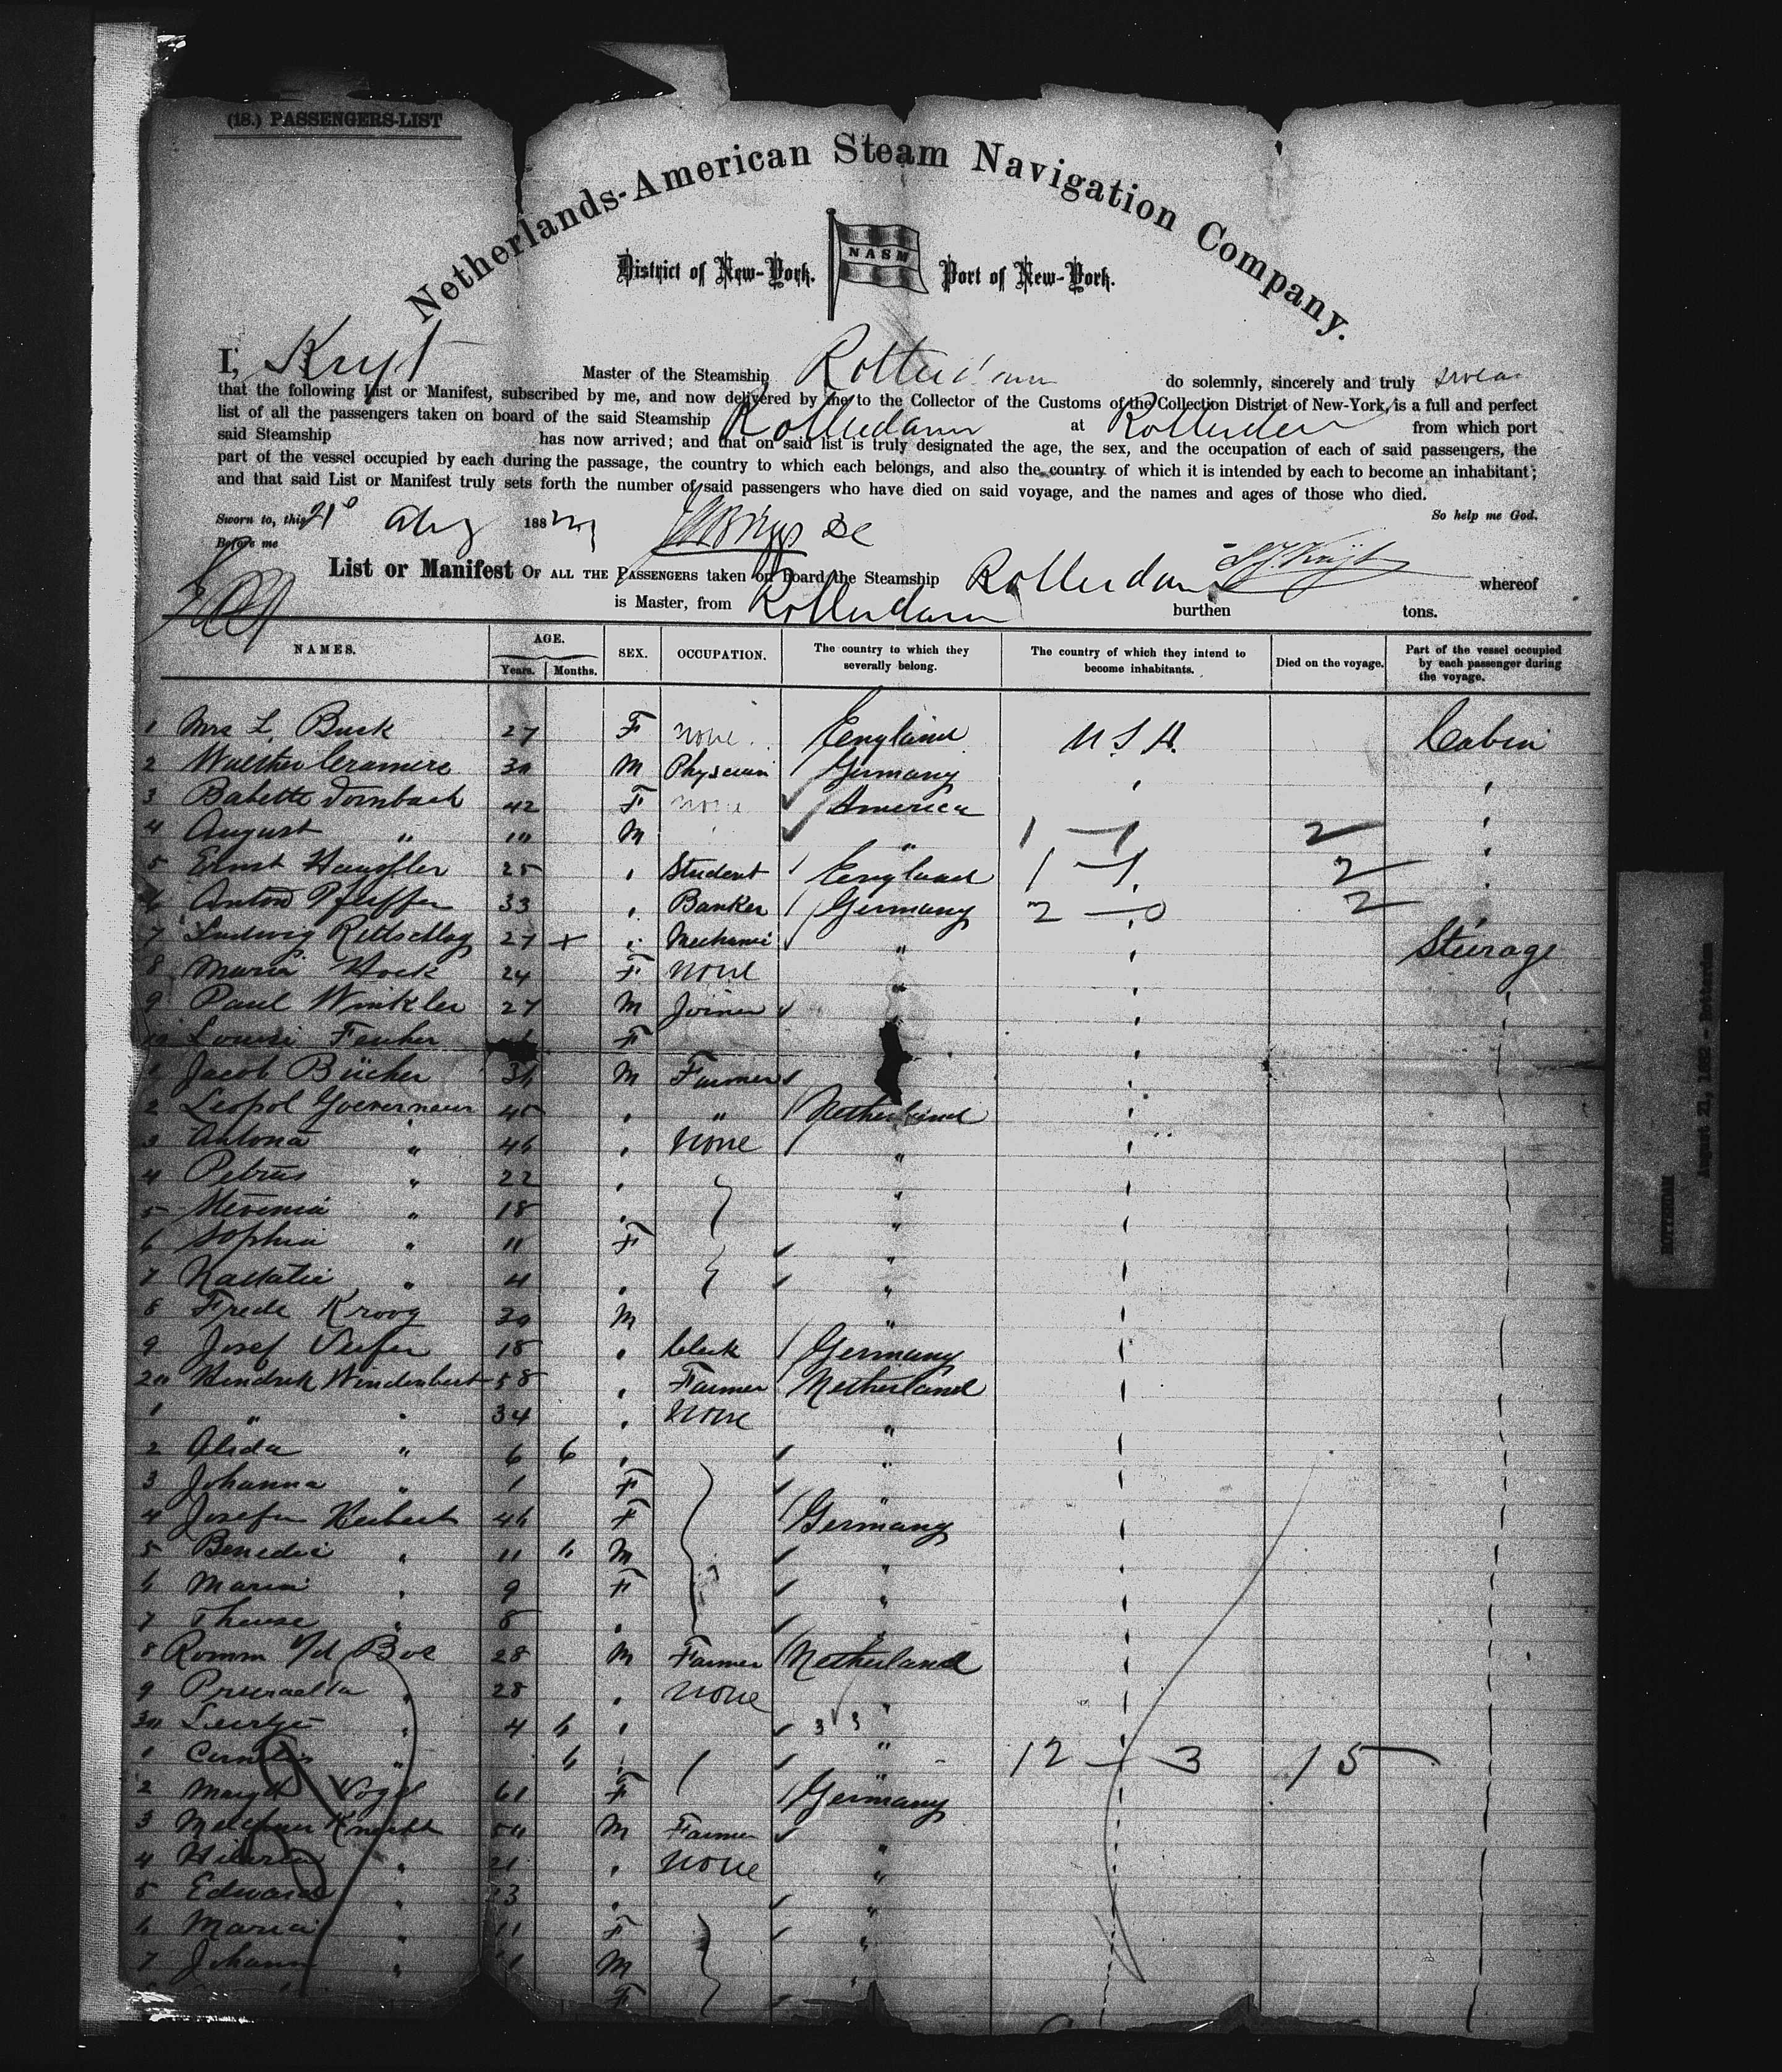 (18.) PASSENGERS-LIST
Netherlands-American Steam Navigation Company.
District of New-York. NASM Port of New-York.
I, Kruyt Master of the Steamship Rotterdam do solemnly, sincerely and truly swear
that the following List or Manifest, subscribed by me, and now delivered by me to the Collector of the Customs of the Collection District of New-York, is a full and perfect
list of all the passengers taken on board of the said Steamship Rotterdam at Rotterdam from which port
said Steamship has now arrived; and that on said list is truly designated the age, the sex, and the occupation of each of said passengers, the
part of the vessel occupied by each during the passage, the country to which each belongs, and also the country of which it is intended by each to become an inhabitant;
and that said List or Manifest truly sets forth the number of said passengers who have died on said voyage, and the names and ages of those who died.
Sworn to, this 21 Aug 1882 So help me God.
Before me
List or Manifest OF ALL THE PASSENGERS taken on board the Steamship Rotterdam whereof
is Master, from Rotterdam burthen tons.
NAMES. AGE. Years. Months. SEX. OCCUPATION. The country to which they severally belong. The country of which they intend to become inhabitants. Died on the voyage. Part of the vessel occupied by each passenger during the voyage.
1 Mrs L. Buck 27 F none England U.S.A. Cabin
2 Walther Cramere 30 M Physician Germany
3 Babette Dornbach 42 F none America
4 August " 10 M " 1 - 1 2
5 Ernst 25 Student England 1 - 1 2
6 Anton Pfeiffer 33 Banker Germany 2 - 0 2
7 Ludwig Rettschlag 27 + Mechanic " Steerage
8 Maria Hock 24 F none "
9 Paul Winkler 27 M Joiner "
10 Louise F
1 Jacob Bücher 34 M Farmer
2 Leopol Goeverneur 45 " Netherland
3 Antona " 46 none "
4 Petrus " 22 "
5 " 18 "
6 Sophia " 11 F "
7 Nathalie " 4 "
8 Frede Kroog 30 M "
9 Josef 18 Clerk Germany
20 Hendrik Wendenbert 58 Farmer Netherland
1 " " 34 none "
2 Alida " 6 6 "
3 Johanna " 1 F "
4 Josefin Herbert 46 F Germany
5 Benedict " 11 6 M "
6 Maria " 9 F "
7 Therese " 8 "
8 Romm v/d Boe 28 M Farmer Netherland
9 " 28 none "
30 Leertje " 4 6 3 3 "
1 Cornelis " 6 " 12 - 3 15
2 Vogel 61 F Germany
3 Knecht 50 M Farmer "
4 " 21 none "
5 Edward " 23 "
6 Maria " 11 F "
7 Johann " M "
F
ROTTERDAM
August 21, 1882 - Rotterdam